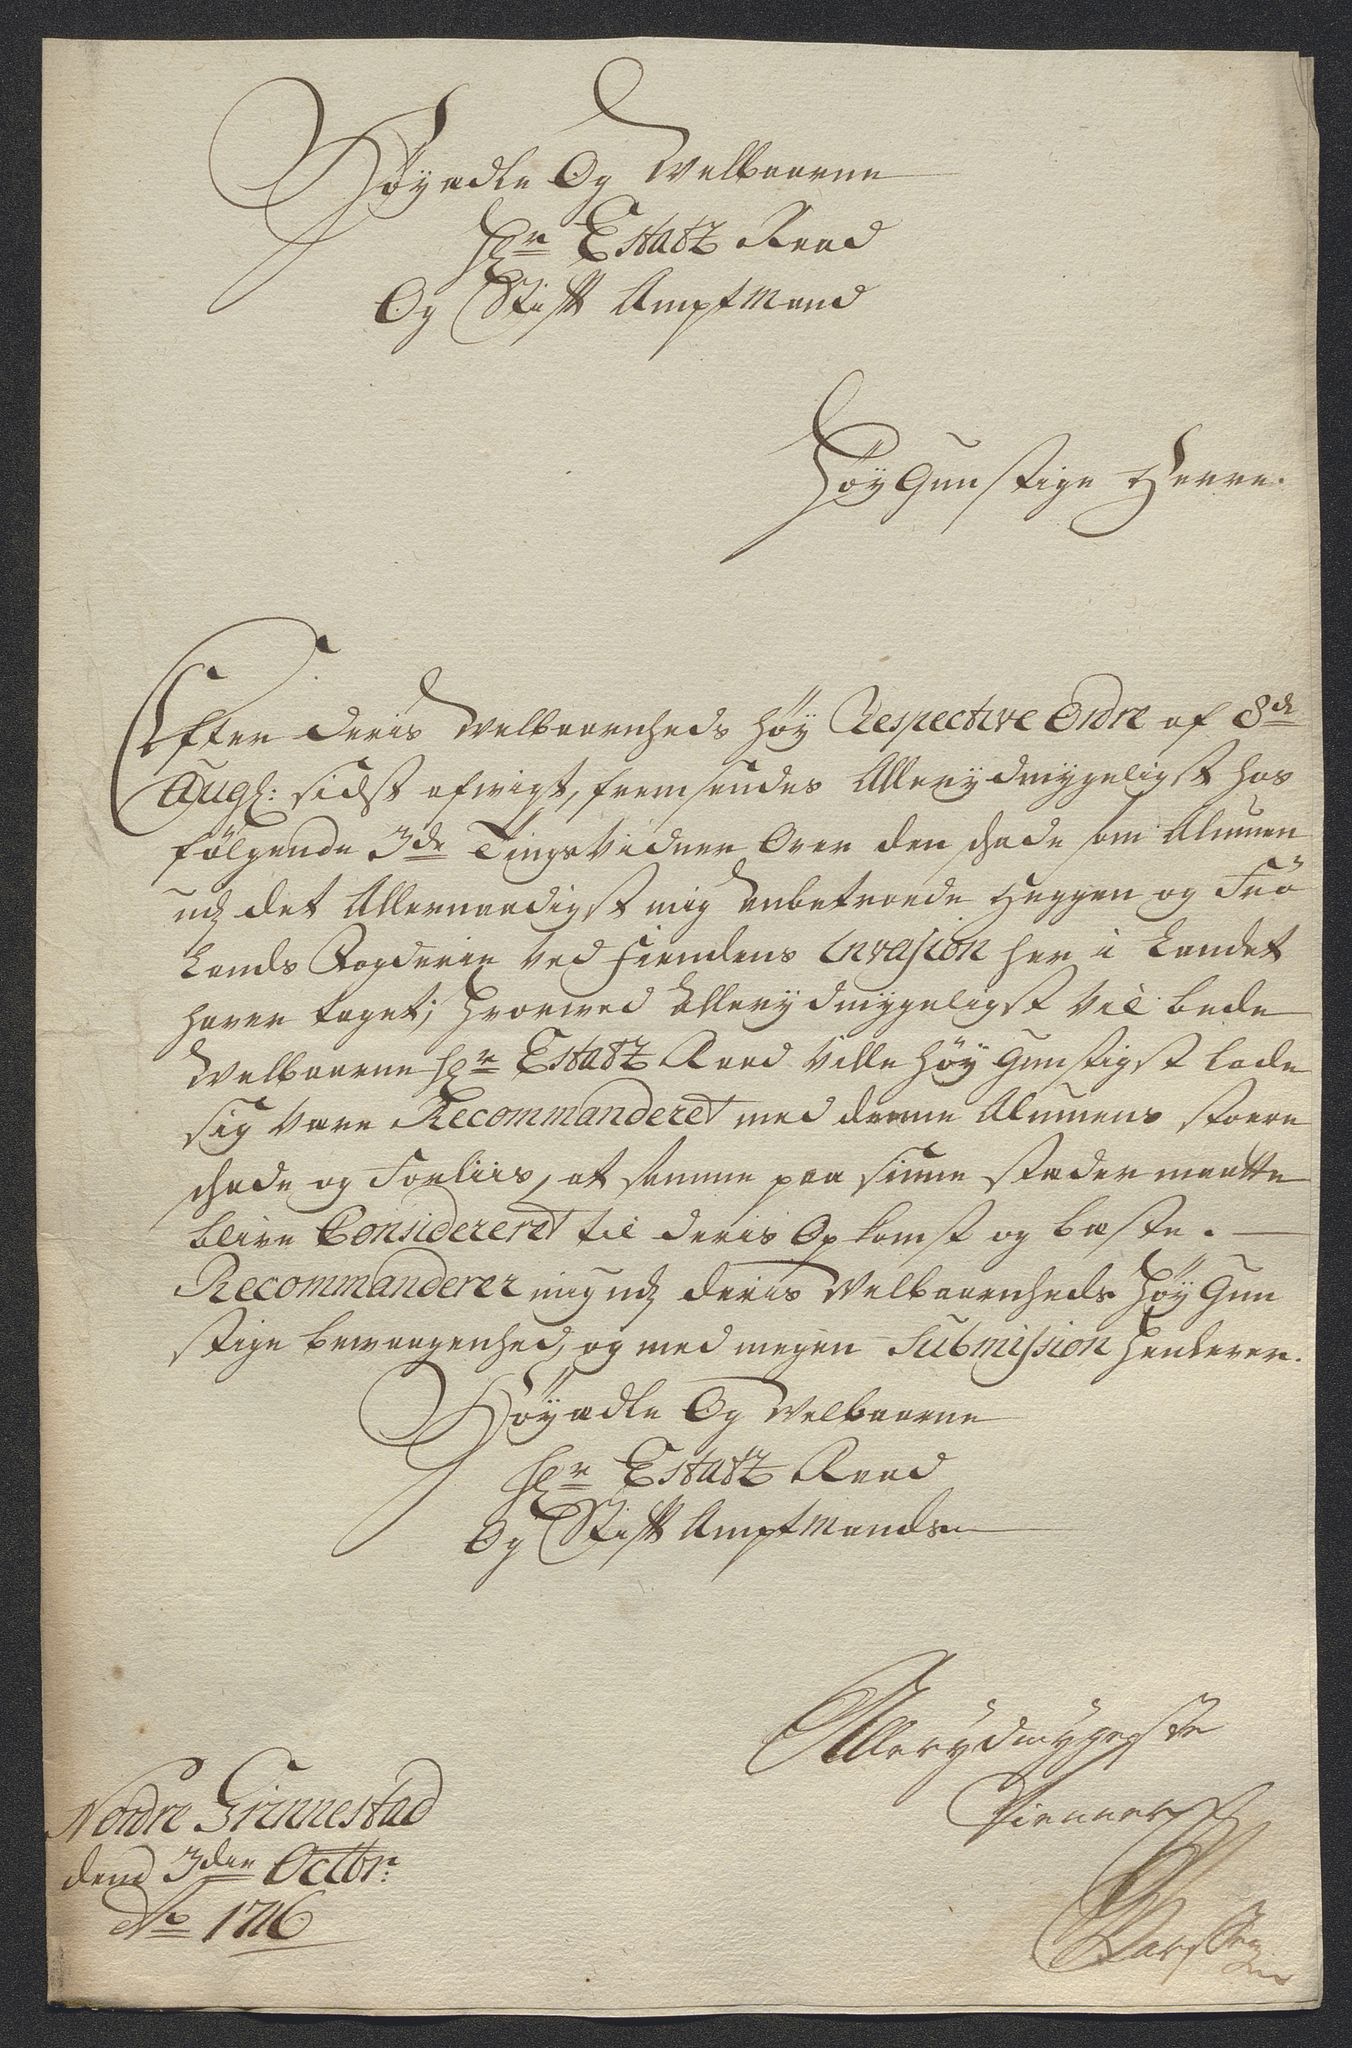 Høyædle Og Welbaarne
Hr Estatz Raad
Og Stifft Amptmand
Høy Gunstige Herre.
Effter deris Welbaarenheds høy Respective Ordre af 8de
Augs: sidst afwigt, fremsendes Allerydmygeligst hos
følgende 3de Tings Vidner Over den schade som Almuen
udj det Allernaadigst mig Anbetroede Heggen og Frö
Lands Fogderie ved Fiendens Invasion her i Landet
hafver taget; hvorved Allerydmygeligst vil bede
Welbaarne Hr Estatz Raad ville høy Gunstigst lade
sig være Recommanderet med denne Almuens stoere
schade og Forliis, at samme paa sinne stæder maatte
blive Considereret til deris Opkomst og bæste.
Recommanderer mig udj deris Welbaarenheds Høy Gun
stige bewaagenhed, og med megen Submission henlever.
Høyædle Og Welbaarne
Hr Estatz Raad
Og Stifft Amptmands
Allerydmygeste
Tienner
Nordre Grinnestad
dend 3die Octbr:
Ao 1716